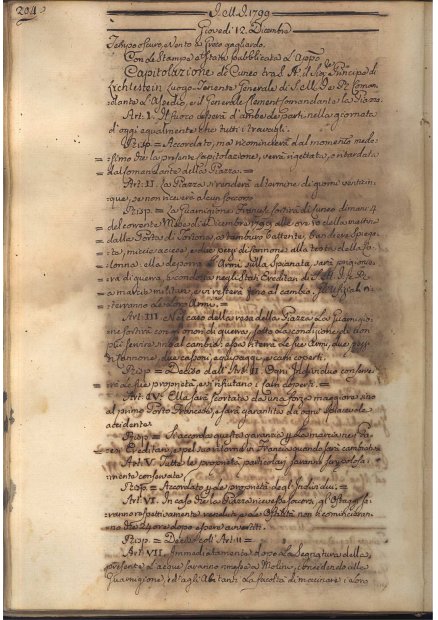 204
J.M.J. 1799
Giovedi 12. Dicembre
Tempo oscuro, e vento
Con le Stampe è stata pubblicata
Capitolazione di Cuneo tra S. A. il Sig. Principe di
Lichtestein Luogo-Tenente Generale di S. M. J. e R. Coman-
dante l'Assedio, e il Generale Clement Comandante la Piazza.
Art. I. Il fuoco cesserà d'ambe le parti nella giornata
d'oggi egualmente che tutti i travagli.
Risp. = Accordato, ma ricomincerà dal momento mede-
simo che la presente Capitolazione, verrà rigettata, o ritardata
dal Comandante della Piazza. =
Art. II. La Piazza si renderà al termine di giorni venticin-
que, se non riceverà alcun soccorso.
Risp. = La Guarnigione Francese sortirà di Cuneo dimani 4
del corrente Mese di Dicembre 1799 alle ore 10 della mattina
dalla Porta di tamburo battente, Bandiere spiega-
te, miccie accese, e due pezzi di Cannone alla testa della Co-
lonna, ella deporrà le Armi sulla Spianata, sarà prigioniera
di guerra, e condotta negli Stati Ereditari di S. M. J. e R.
a marcie militari, e vi resterà fino al cambio, gli Uffiziali ri-
terranno le loro Armi. =
Art. III. Nel caso della resa della Piazza la Guarnigio-
ne sortirà con onori di guerra, sotto la condizione di non
più servire sino al cambio: essa riterrà le sue Armi, due pezzi
di Cannone, due cassoni, equipaggi, e carri coperti.
Risp. = Deciso dall'Art. II. Ogni Individuo conserve-
rà le sue proprietà, e si rifiutano i Carri coperti. =
Art. IV. Ella sarà scortata da una forza maggiore sino
al primo Posto Francese, e sarà garantita da ogni spiacevole
accidente.
Risp. = Si accorda questa garanzia per la marcia nei Pa-
esi Ereditari, e pel suo ritorno in Francia quando sarà cambiata.
Art. V. Tutte le proprietà particolari saranno scrupolosa-
mente conservate.
Risp. = Accordato per le proprietà degli Individui. =
Art. VI. In caso che la Piazza ricevesse soccorso, gli Ostaggi sa-
ranno rispettivamente renduti, e le Ostilità non ricomincieran-
no che 24 ore dopo essersi avvertiti.
Risp. = Deciso coll'Art. II =
Art. VII. Immediatamente dopo la Segnatura della
presente le acque saranno rimesse a' Molini, concedendo alla
Guarnigione, e agli Abitanti la facoltà di macinare i loro